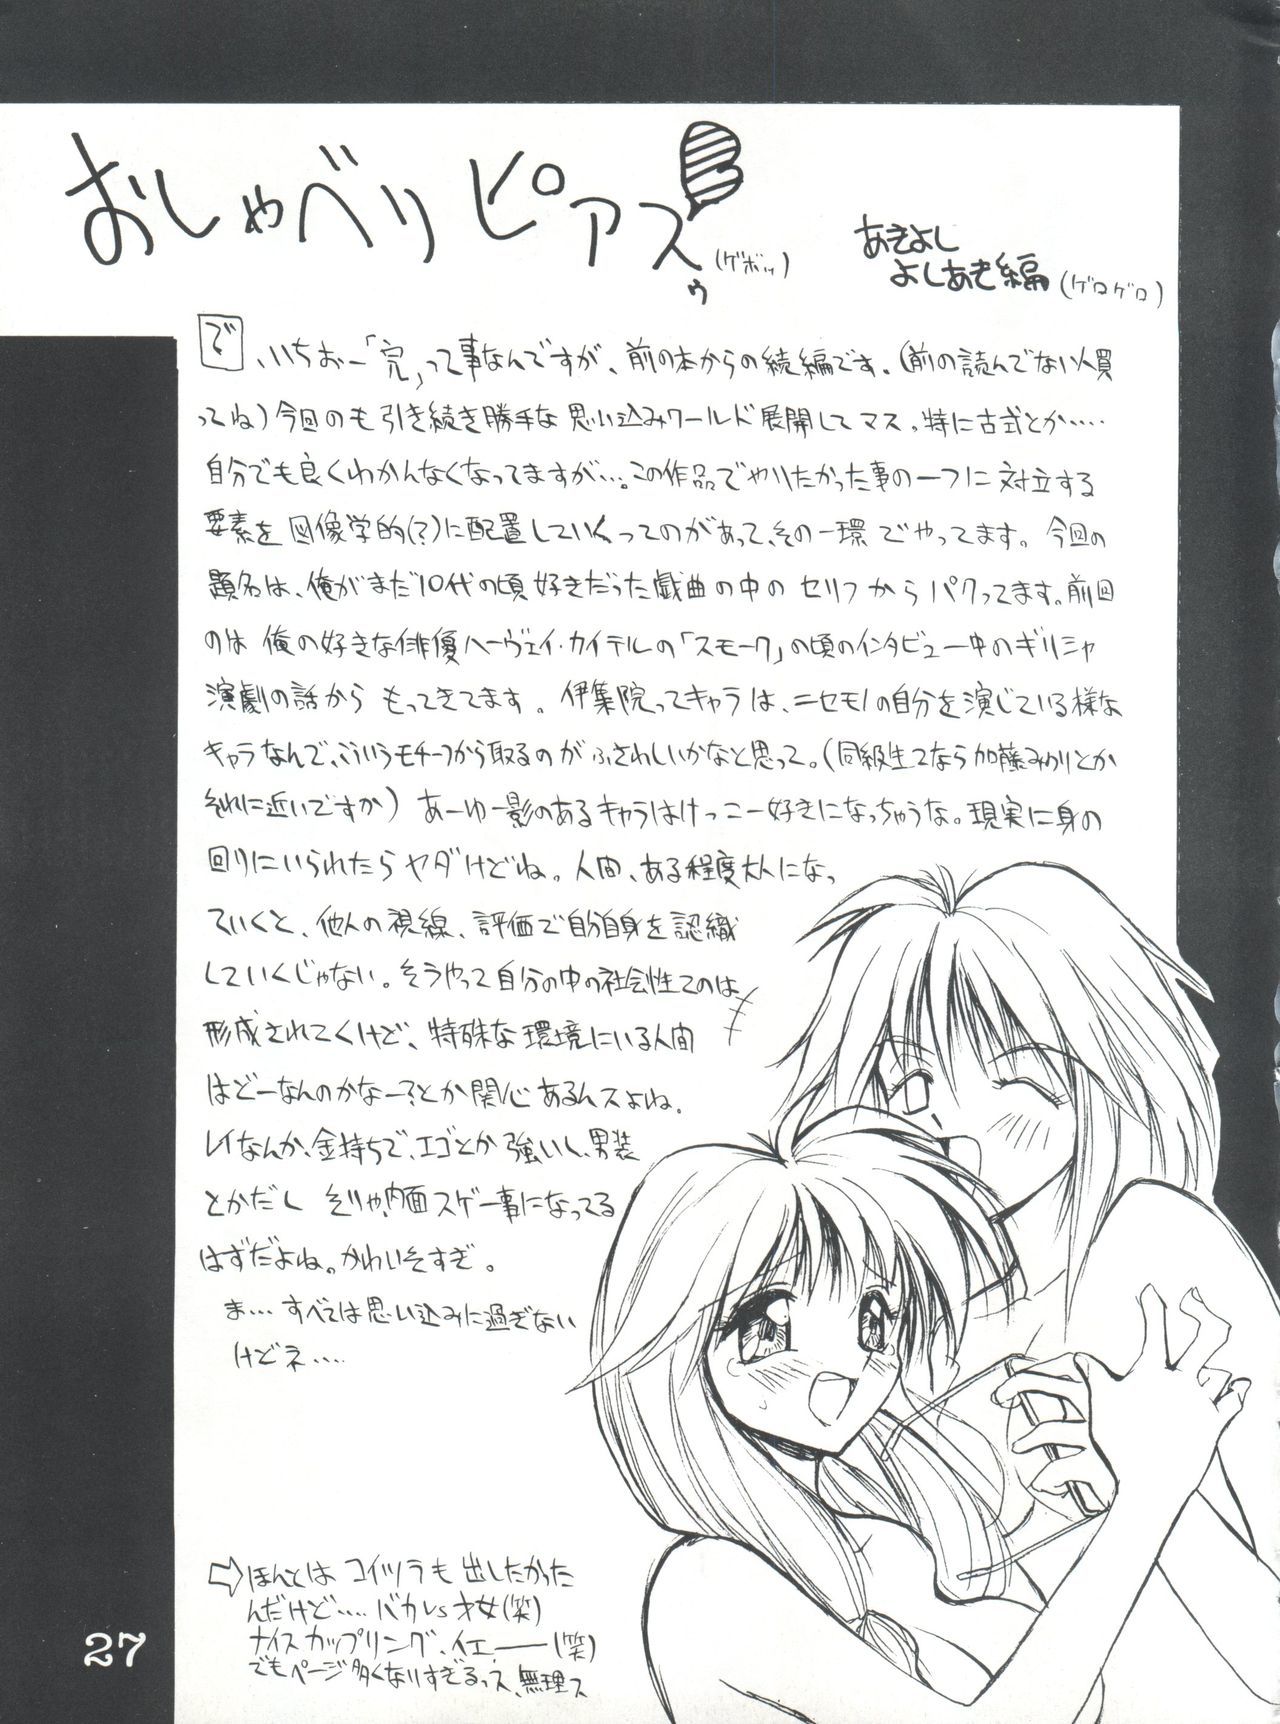 おしゃべりピアスゥ
(ゲボッ)
あきよし
よしあき編(ゲロゲロ)
で、いちおー「完」って事なんですが、前の本からの続編です。(前の読んでない人買
ってね)今回のも引き続き勝手な思い込みワールド展開してマス。特に古式とか‥‥‥
自分でも良くわかんなくなってますが…。この作品でやりたかった事の一つに対立する
要素を図像学的(?)に配置していくってのがあって、その一環でやってます。今回の
題名は、俺がまだ10代の頃好きだった戯曲の中のセリフからパクってます。前回
のは俺の好きな俳優ハーヴェイ・カイテルの「スモーク」の頃のインタビュー中のギリシャ
演劇の話からもってきてます。伊集院ってキャラは、ニセモノの自分を演じている様な
キャラなんで、こういうモチーフから取るのがふさわしいかなと思って。(同級生2なら加藤みのりとか
それに近いですか)あーゆー影のあるキャラはけっこー好きになっちゃうな。現実に身の
回りにいられたらヤダけどね。人間、ある程度大人になっ
ていくと、他人の視線、評価で自分自身を認識
していくじゃない。そうやって自分の中の社会性てのは
形成されてくけど、特殊な環境にいる人間
はどーなんのかなー?とか関心あるんスよね。
レイなんか、金持ちで、エゴとか強いし、男装
とかだし そりゃ内面スゲー事になってる
はずだよね。かわいそすぎ。
ま‥‥すべては思い込みに過ぎない
けどネ‥‥‥
⇨ほんとはコイツラも出したかった
んだけど‥‥バカvs才女(笑)
ナイスカップリング、イエー――(笑)
でもページ多くなりすぎるっス、無理ス
27